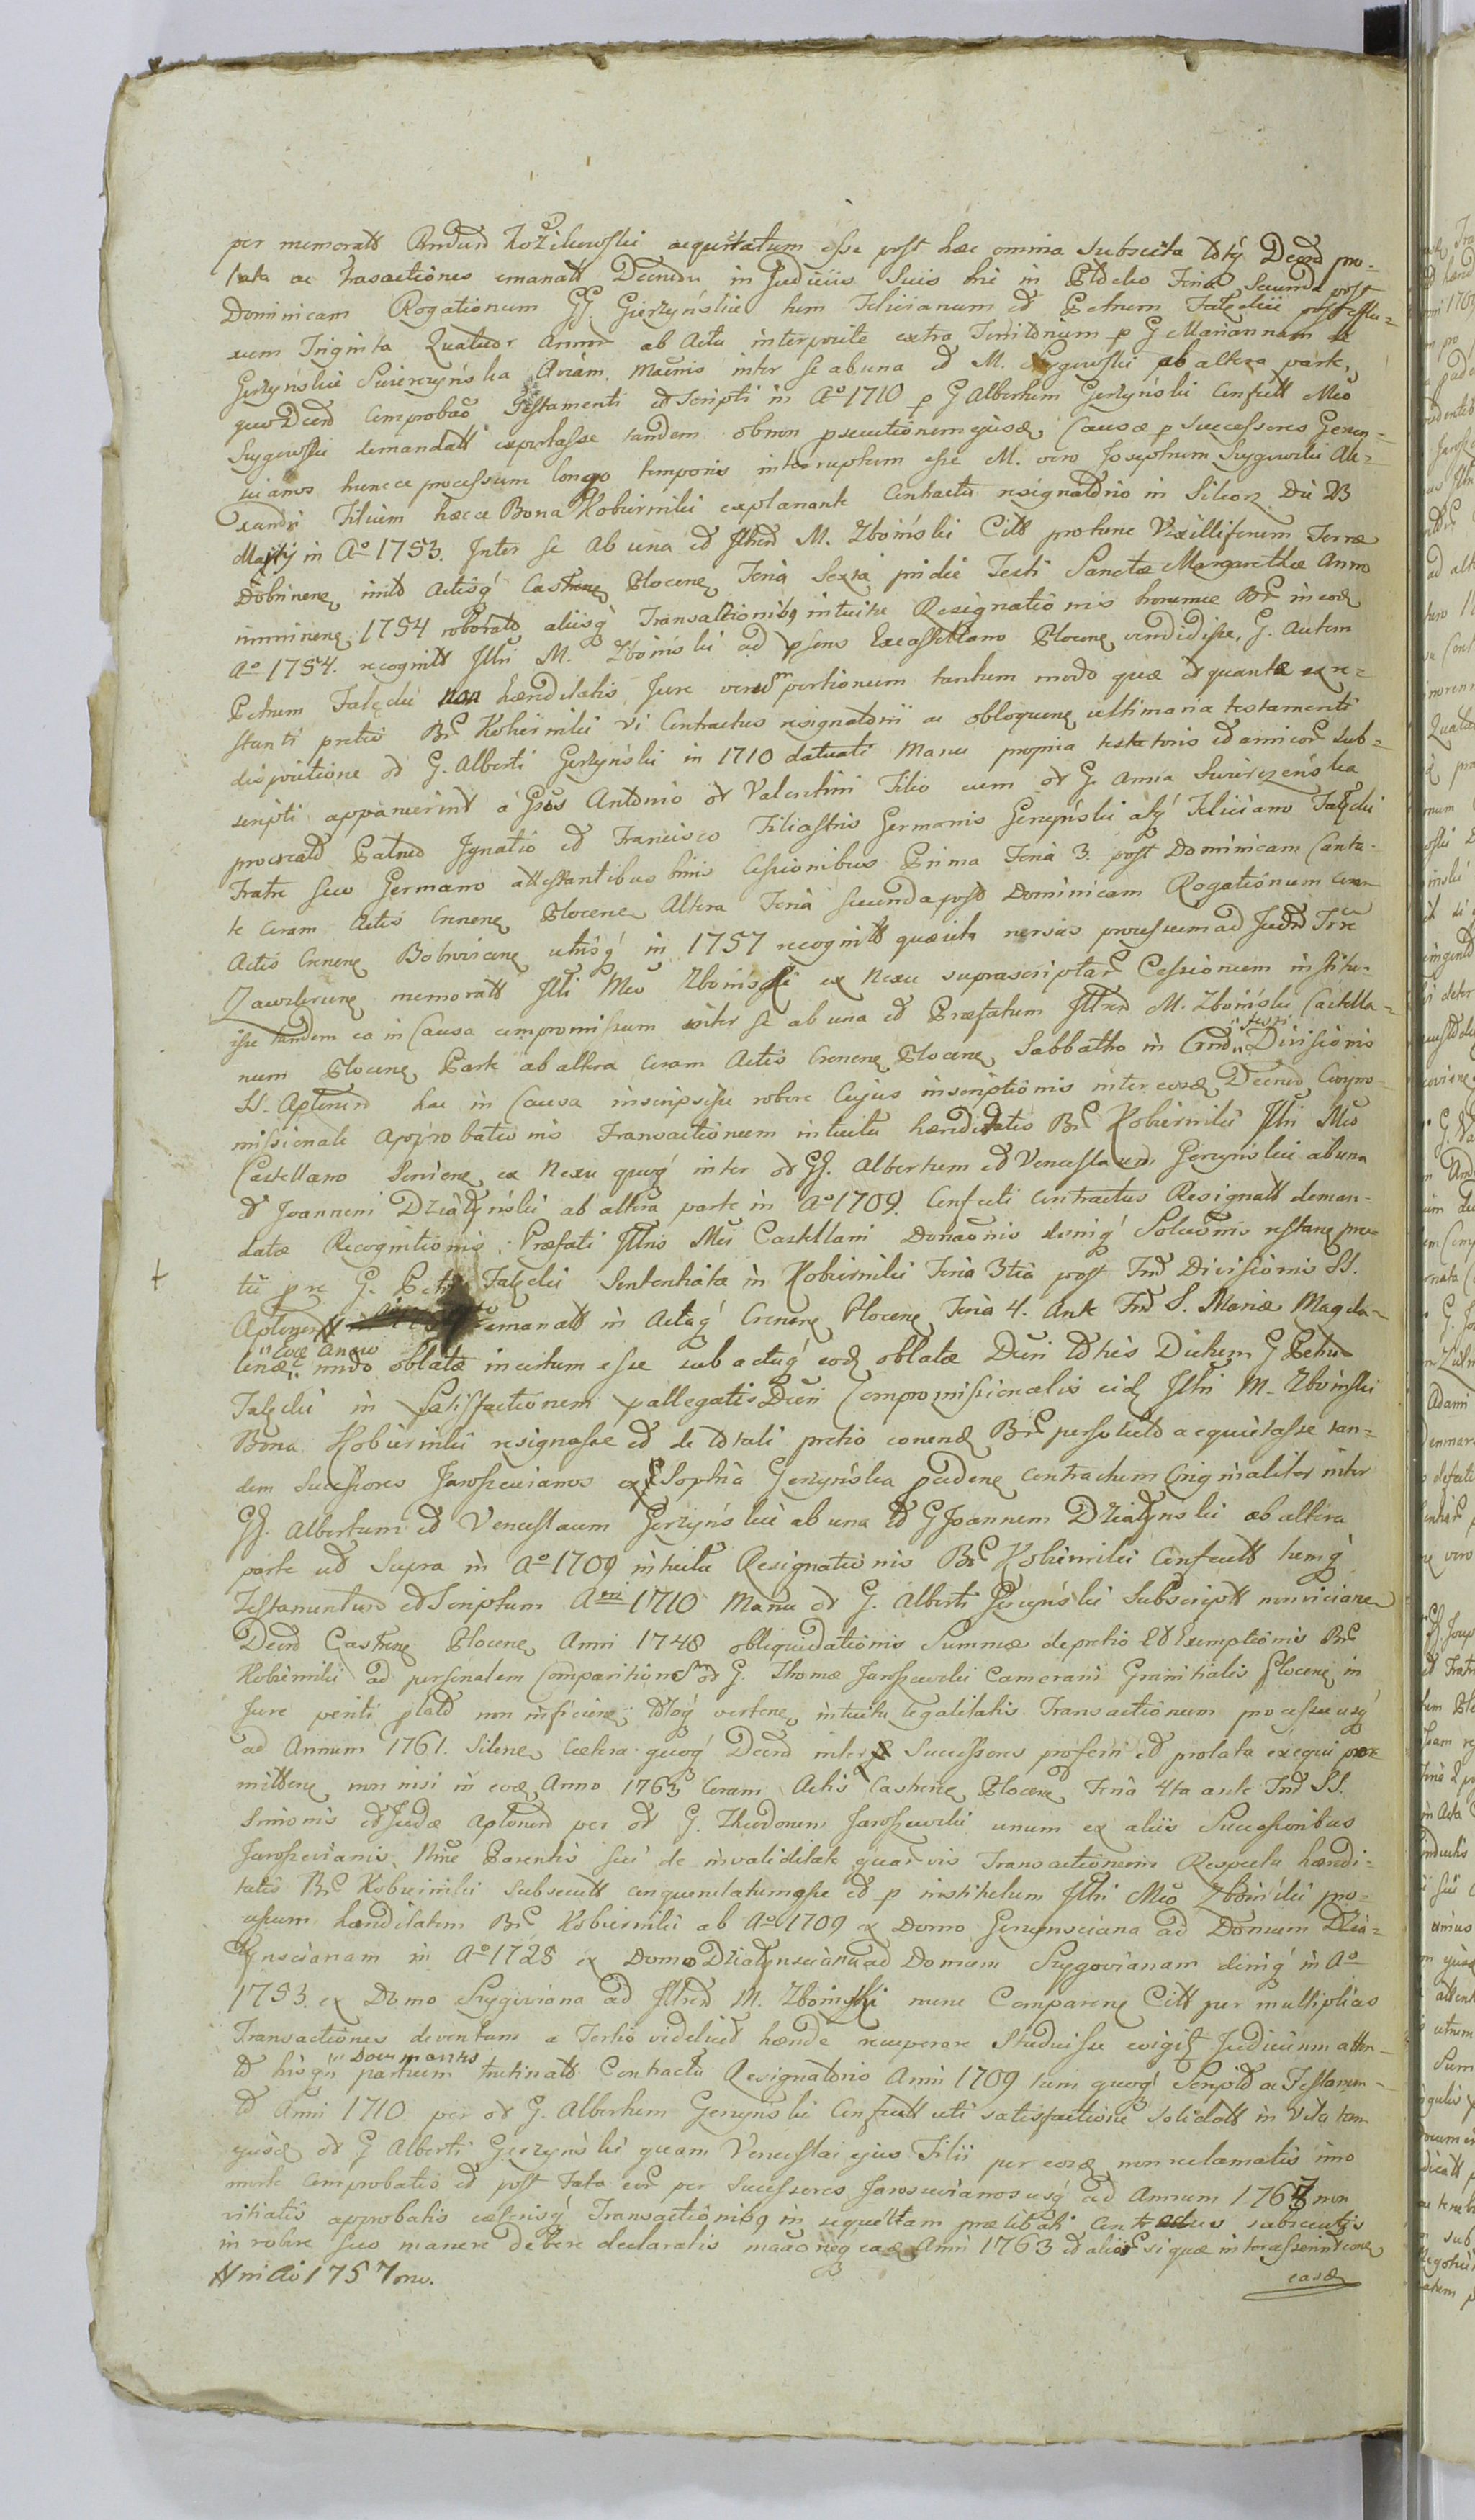 per memoratt Andream Kożikowski acquietatum esse post hæc omnia subsecuta Decrd pro-
lata ac Trasactiones emanatt Decreta in Judiciis Suis hic in Plocko Feria Secunda post
Dominicam Rogationum GG. Gierzyńskie tum Felicianum et Petrum Falęckii
Triginta Quatuor annor ab Actu interposite extra Territorium p G Mariannam de
Gerzyńskie Swierczyńska inter se ab una et M. Szygowski ab altera parte,
Decrd comprobao Testamenti et Scripti in Ao 1710 p G Albertum Gerzyński confectt Mco
Szygowski demandatt tandem ob non psecutionem ejusd Causæ p Successores Gerzyn-
scianos huncce processum longo temporis interruptum esse M. vero Josephum Szygowski Ale-
xandri Filium hæcce Bona Kobierniki explanante Contractu resignatorio in Sikorz Die 23
Maji in Ao 1753. Inter se ab una et Illrem M. Zboiński Citt protunc Vexilliferum Terræ
Dobrinen inito Actisq Castren Plocen Feria Sexta pridie Festi Sanctæ Margarethæ Anno
imminen 1754 roborato aliisq Transactionibq intuitu Resignationis horumce Br in eod
Ao 1754. recognitt Illri M. Zboiński ad psens Excastellano Plocen vendidisse, G. autem
Petrum Falęcki non hæreditatis Jure verum portionum tantum modo quæ et quantæ ex re-
stanti pretio Br Kobierniki vi Contractus resignatorii ac obloquen ultimaria testamenti
dispositione od G. Alberti Gerzyński in 1710 datuati Manu propria testatoris et amicor sub-
scripti appanuerint a Gsis Antonio od Valentini Filio cum od G. Anna Swierczeńska
procreato Patruo Ignatio et Francisco Filiastris Germanis Gerzyński atq Feliciano Falęcki
Fratre suo Germano attestantibus binis Cessionibus Prima Feria 3. post Dominicam Canta-
te coram Actis Crenen Plocen Altera Feria secunda post Dominicam Rogationum coram
Actis Crenen Bobrovicen utrisq in 1757 recognitt quæsita nersus processum ad Judm Trre
Zawskrzen memoratt Illi Mco Zboiński ex Nexu suprascriptar Cessionum institu-
isse tandem eo in Causa compromissum inter se ab una et Præfatum Illrem M. Zboiński Castella-
num Plocen Parte ab altera coram Actis Crenen Plocen Sabbatho in Crnd "festi" Divisionis
SS. Aplorum hac in Causa inscripsisse robore Cujus inscriptionis inter eosd Decreto Compro-
missionali approbationis Transactionum intuitu hæreditatis Br Kobierniki Illri Mco
Castellano servien ex Nexu quoq inter od GG. Albertum et Venceslaum Gerzyńskie ab una
et Joannem Działyński ab altera parte in Ao 1709. Confecti Contractus Resignatt deman-
datæ Recognitionis, Præfati Illris Mci Castellani Donaonis deniq Solutionis restan pre-
tii p re G. Petri Falęcki Sententiata in Kobierniki Feria 3tia post Fnd Divisionis SS.
Aplorum # emanatt in Actaq Crenen Plocen Feria 4. Ante Fnd S. Mariæ Magda-
lenæ "eoq Anno" modo oblatæ incisum esse sub actuq eod oblatæ Dicri Dictum G Petru
Falęcki in Satisfactionem pallegatis Decri Compromissionalis eid Illri M. Zboiński
Bona Kobierniki resignasse et de totali pretio eorund Br persoluto acquietasse tan-
dem Successores Jaroszewianos ex Sophia Gerzyńska contractum originaliter inter
GG. Albertum et Venceslaum Gerzyńskie ab una et G Joannem Działyński ab altera
parte ut Supra in Ao 1709 intuitu Resignationis Br Kobierniki Confectt tumq
Testamentum et Scriptum Ani 1710 Manu od G. Alberti Gerzyński Subscriptt non viciare
Decrd Castren Plocen Anni 1748 obliquidationis Summæ de pretio Et Exemptionis Br
Kobierniki ad personalem Comparitionem od G. Thomæ Jaroszewski Camerarii Granitialis Plocen in
Jure periti non inficien vertene intuitu legalitatis Transactionum processu usq
ad Annum 1761. silene Cætera quoq Decrd inter Successores proferri et prolata exequi per-
mitten non nisi in eod Anno 1763 coram Actis Castren Plocen Feria 4ta ante Fnd SS.
Simonis et Judæ Aplorum per od G. Theodorum Jaroszewski unum ex aliis Successoribus
Jaroszevianis Nne Parentis sui de invaliditate quarvis Transactionum Respectu hæredi-
tatis Br Kobierniki subsecutt conquerulatum esse et p institutum Illri Mco Zboiński pro-
cessum hæreditatem Br Kobierniki ab Ao 1709 ex Domo Gerzynsciana ad Domum Dzia-
łynscianam in Ao 1728 ex Domo Działynsciana ad Domum Szygowianam deniq in Ao
1753. ex Domo Szygoviana ad Illrem M. Zboiński nunc Comparen Citt per multiplices
Transactiones deventum a Tertio videlicet hærede recuperare Studuisse exigit Judicium atten-
to hisq "Documentis" partium trutinatt Contractu Resignatorio Anni 1709 tum quoq Scripto ac Testamen-
to Anni 1710 per od G. Albertum Gerzyński Confectt uti satisfactione solidatt in vita tam
ejusd od G Alberti Gerzyński quam Venceslai ejus Filii per eosd non reclamatis imo
morte comprobatis et post Fata eor per Successores Jaroszevianos usq ad Annum 1763 non
vitiatis approbatis cæterisq Transactionibq in sequellam prælibati Contractus subsecutis
in robore suo manere debere declaratis eaæ Anni 1763 et alior si quæ intercesserint
# in Ao 1757mo.
easd